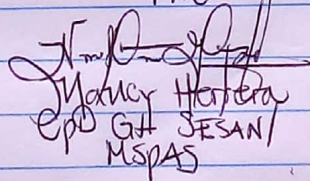 Yancy Herrera
EPD GH SESAN/
MSPAS